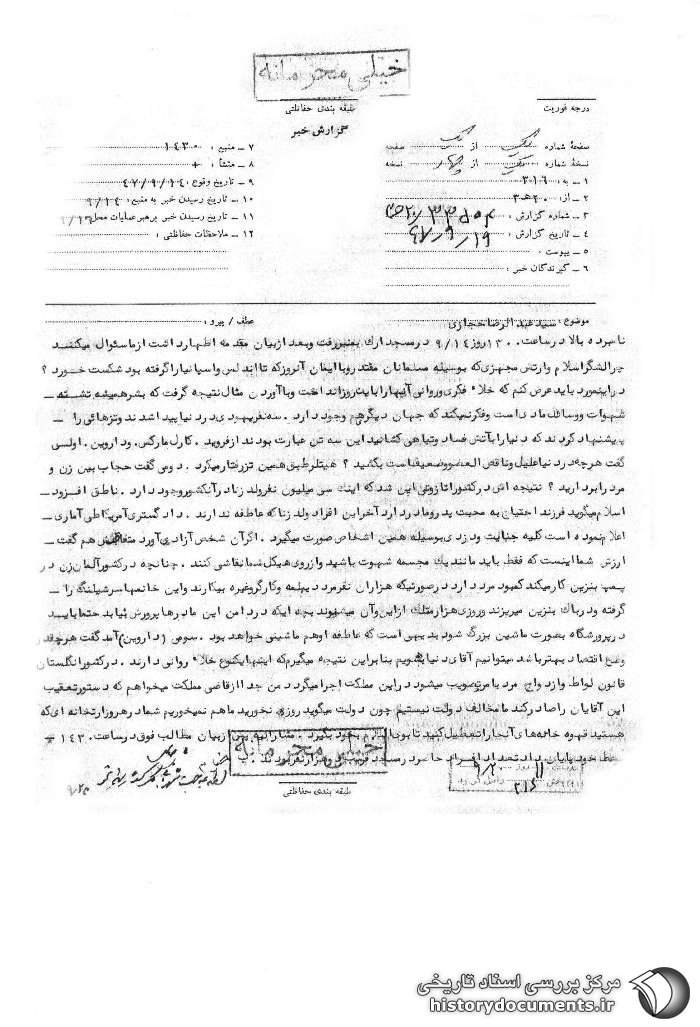 خیلی محرمانه
درجه فوریت
طبقه بندی حفاظتی
گزارش خبر
صفحهٔ شماره یک از یک صفحه
نسخهٔ شماره یک از چهار نسخه
۱ ـ به : ۳۰۱۶
۲ ـ از : ۲۰ هـ ۳
۳ ـ شماره گزارش :
۴ ـ تاریخ گزارش : ۴۷/۹/۱۹
۵ ـ پیوست :
۶ ـ گیرندگان خبر :
۷ ـ منبع : ۱۴۳۰
۸ ـ منشأ : +
۹ ـ تاریخ وقوع : ۴۷/۹/۱۴
۱۰ ـ تاریخ رسیدن خبر به منبع : ۹/۱۴
۱۱ ـ تاریخ رسیدن خبر برهبر عملیات محل :
۱۲ ـ ملاحظات حفاظتی :
موضوع : سید عبدالرضا حجازی
عطف / پیرو :
نامبرده بالا در ساعت ۱۳۰۰ روز ۹/۱۴ در مسجد ارك بمنبر رفت و بعد از بیان مقدمه اظهار داشت از ما سئوال میکنند
چرا لشگر اسلام و ارتش مجهزی که بوسیله مسلمانان مقتدر و با ایمان آنروز که تا اندلس و اسپانیا را گرفته بود شکست خورد ؟
در اینمورد باید عرض کنم که خلاء فکری و روانی آنها را باینروز انداخت و با آوردن مثال نتیجه گرفت که بشر همیشه تشنه ـ
شهوات و وسائل مادی است و فکر نمیکند که جهان دیگر هم وجود دارد . سه نفر یهودی در دنیا پیدا شدند و تزهائی را ـ
پیشنهاد کردند که دنیا را بآتش فساد و تباهی کشانید این سه تن عبارت بودند از فروید . کارل مارکس . و داروین . اولی
گفت هرچه در دنیا علیل و ناقص العضو و ضعیف است بکشید ؟ هیتلر طبق همین تز رفتار میکرد . دومی گفت حجاب بین زن و
مرد را بردارید ؟ نتیجه اش در کشور نازوئی این شد که اینك سی میلیون نفر ولد زنا در آنکشور وجود دارد . ناطق افزود ـ
اسلام میگوید فرزند احتیاج به محبت پدر و مادر دارد آخر این افراد ولد زنا که عاطفه ندارند . دادگستری آمریکا طی آماری ـ
اعلام نموده است کلیه جنایت و دزدی بوسیله همین اشخاص صورت میگیرد . اگر آن شخص آزادی آورد هم گفت ـ
ارزش شما اینست که فقط باید مانند یك مجسمه شهوت باشید و از روی هیکل شما نقاشی کنند . چنانچه در کشور آلمان زن در
پمپ بنزین کار میکند کمبود مرد دارد در صورتیکه هزاران نفر مرد دیپلمه و کارگر و غیره بیکارند و این خانمها سر شیلنگ را ـ
گرفته و در باك بنزین میریزند و روزی هزار متلك از این و آن میشنوند بچه ایکه در دامن این مادرها پرورش بیابد حتما بایسد
در پرورشگاه بصورت ماشین بزرگ شود بدیهی است که عاطفه او هم ماشینی خواهد بود . سومی (داروین) آمد گفت هر چقدر
وضع اقتصاد بهتر باشد میتوانیم آقای دنیا بشویم بنابراین نتیجه میگیرم که اینها یکنوع خلاء روانی دارند . در کشور انگلستان
قانون لواط و ازدواج مرد با مرد تصویب میشود در این مملکت اجرا میگردد من جدا از قاضی مملکت میخواهم که دستور تعقیب
این آقایان را صادر کند ما مخالف دولت نیستیم چون دولت میگوید روزی نخورید ما هم نمیخوریم شما در هر وزارتخانه ای که
هستید قهوه خانه های آنجا را تعطیل کنید تا بوی اسلام بخود بگیرد . مشارالیه پس از بیان مطالب فوق در ساعت ۱۴۳۰ ـ
خود پایان داد تعداد افراد حاضر در مسجد قریب دو هزار نفر بودند .
خیلی محرمانه
طبقه بندی حفاظتی
مرکز بررسی اسناد تاریخی
historydocuments.ir